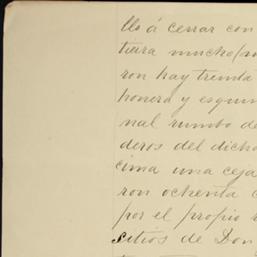 llo á cerrar con
tura mucho
ron hay treinta
honera y esquin
nal rumbo de
deros del dicho
cima una ceja
ron ochenta
por el propio
sitios de Don